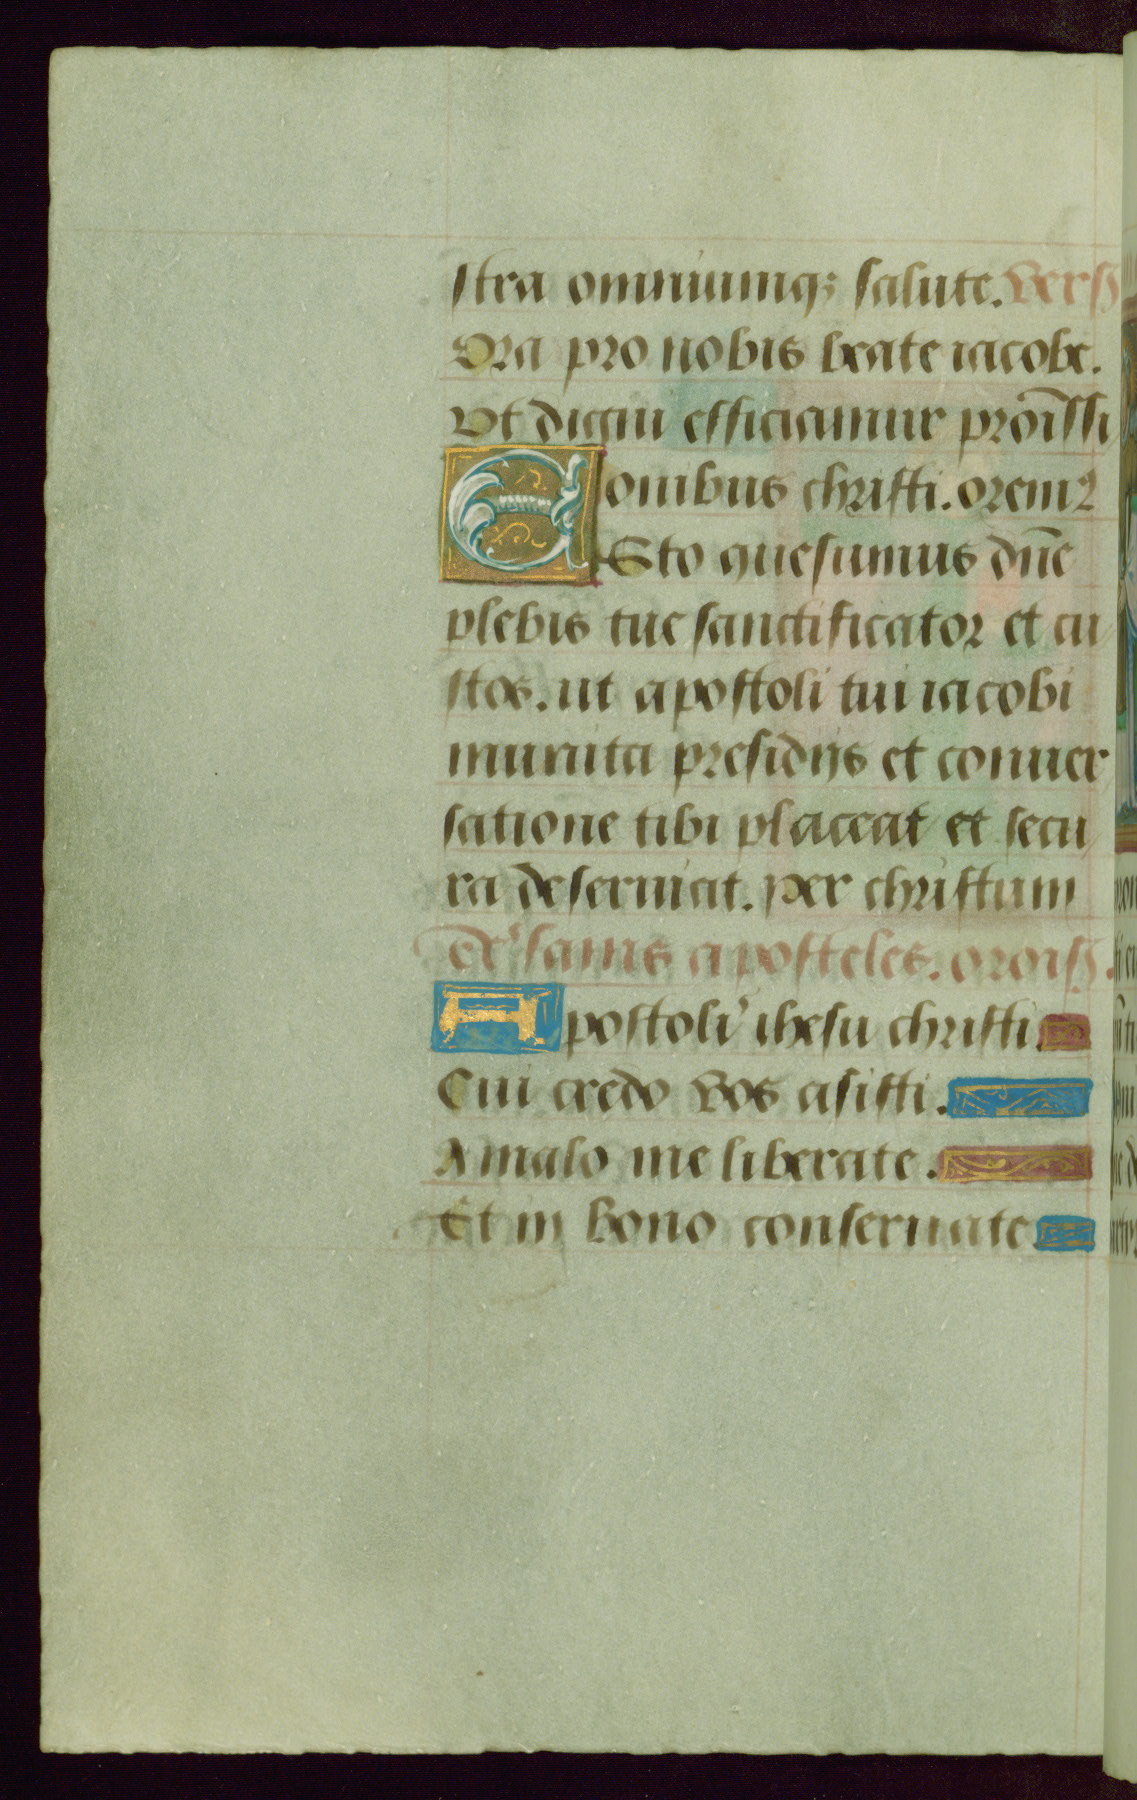 stra omniumq3 salute. vers
Ora pro nobis beate iacobe.
Ut digni efficiamur pro͞issi
onibus christi. orem2
ESto quesumus dn̄e
plebis tue sanctificator et cu
stos. ut apostoli tui iacobi
munita presidijs et conuer
satione tibi placeat et secu
ra deseruiat. per christum
De' sains aposteles. orois.
Apostoli' ihesu christi.
Cui credo vos asisti.
A malo me liberate.
Et in bono conseruate